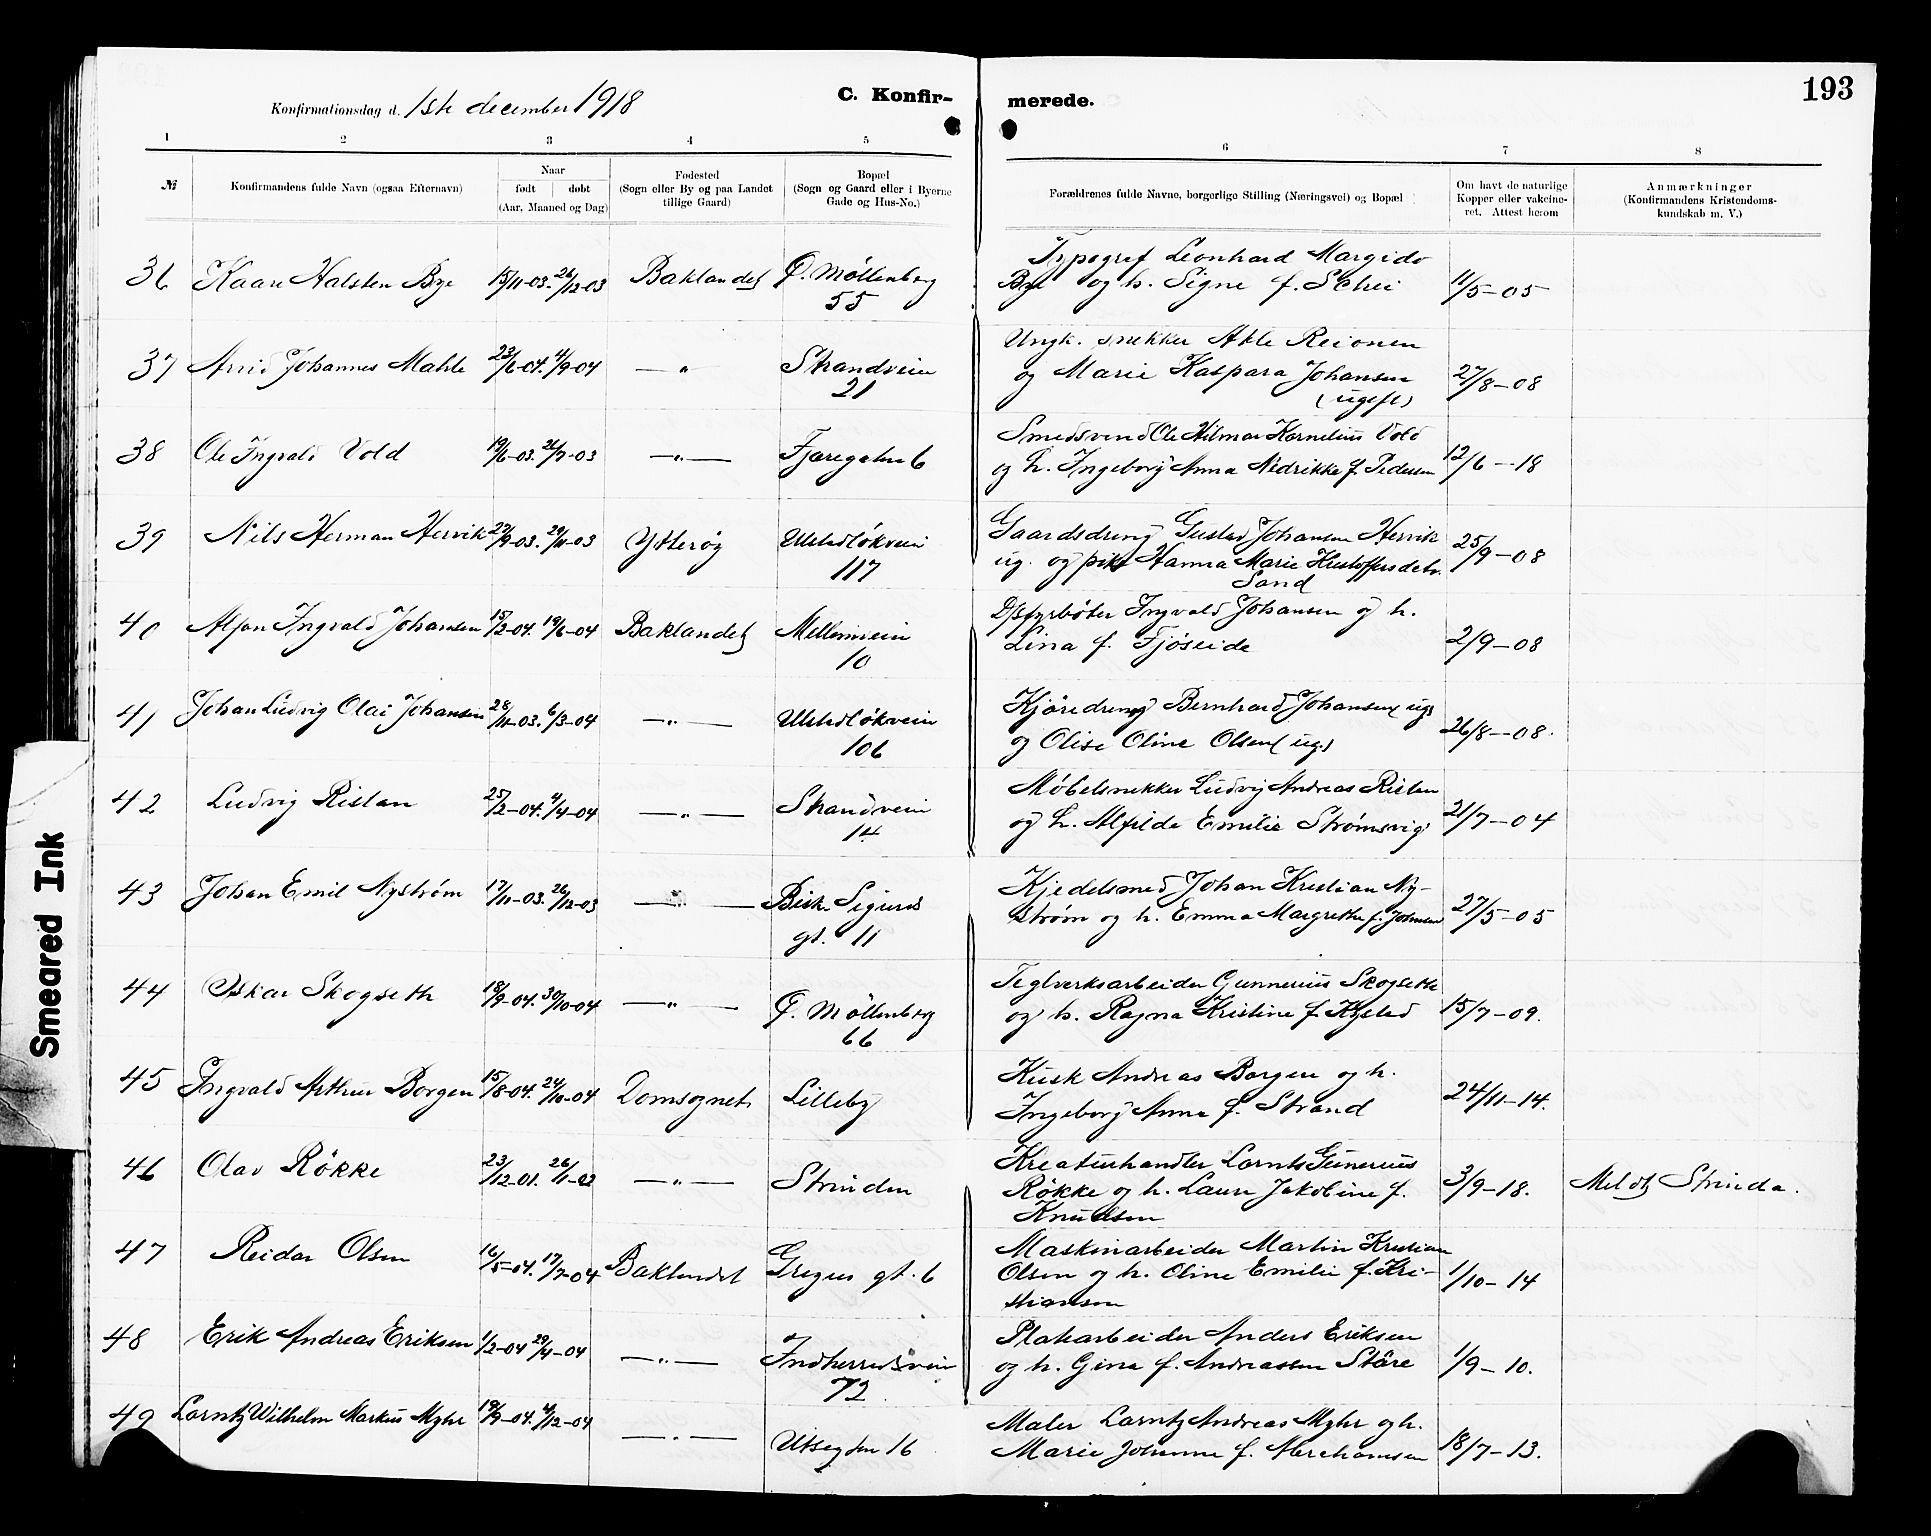 193
Konfirmationsdag d. 1ste december 1918
C. Konfir-
merede.
1 2 3 4 5 6 7 8
№
Konfirmandens fulde Navn (ogsaa Efternavn)
Naar
født døbt
(Aar, Maaned og Dag)
Fødested
(Sogn eller By og paa Landet
tillige Gaard)
Bopæl
(Sogn og Gaard eller i Byerne
Gade og Hus-No.)
Forældrenes fulde Navne, borgerlige Stilling (Næringsvei) og Bopæl
Om havt de naturlige
Kopper eller vakcine-
ret. Attest herom
Anmærkninger
(Konfirmandens Kristendoms-
kundskab m. V.)
36 Kaare Halsten Bye 15/11-03. 26/12-03 Baklandet Ø. Møllenberg
55
Typograf Leonhard Margido
Bye og h. Signe f. Schei 11/5-05
37 Arvid Johannes Mahle 23/6-04. 4/9-04 —〃 Strandveien
21
Ungk. snekker Atle Reionen
og Marie Kaspara Johansen 27/8-08
(ugift)
38 Ole Ingvald Vold 19/6-03. 26/7-03 —〃— Fjæregaten 6
Smedsvend Ole Hilmar Kornelius Vold
og h. Ingeborg Anna Nedrikke f. Pedersen 12/6-18
39 Nils Herman Hervik 22/9-03. 29/11-03 Ytterøy Ulstadløkveien
117
Gaardsdreng Gustav Johansen Hervik
ug. og pike Hanna Marie Kristoffersdatr. 25/9-08
Sand
40 Alfon Ingvald Johansen 15/2-04. 19/6-04 Baklandet Mellemveien
10
D/sfyrbøter Ingvald Johansen og h.
Lina f. Fjøseide 2/9-08
41 Johan Ludvig Olai Johansen 28/11-03. 6/3-04 —〃— Ulstadløkveien
106
Kjøredreng Bernhard Johansen (ug)
og Olise Oline Olsen (ug.) 26/8-08.
42 Ludvig Ristan 25/2-04. 4/4-04 —〃— Strandveien
14
Møbelsnekker Ludvig Andreas Ristan
og h. Alfilde Emilie Strømsvig 21/7-04
43 Johan Emil Nystrøm 17/11-03. 26/12-03 —〃— Bisk. Sigurds
gt. 11
Kjedelsmed Johan Kristian Ny-
strøm og h. Emma Margrethe f. Johnsen 27/5-05
44 Oskar Skogseth 18/9-04. 30/10-04 —〃— Ø. Møllenberg
66
Teglverksarbeider Gunnerius Skogseth
og h. Ragna Kristine f. 15/7-09.
45 Ingvald Arthur Borgen 15/8-04. 24/10-04 Domsognet Lilleby
Kusk Andreas Borgen og h.
Ingeborg Anna f. Strand 24/11-14.
46 Olav Røkke 23/12-01. 26/1-02 —〃— Strinden
Kreaturhandler Lornts Gunerius
Røkke og h. Laura Jakobine f. 3/9-18. Meldt Strinda.
Knudsen
47 Reidar Olsen 16/5-04. 17/7-04 Baklandet Gregus gt. 6
Maskinarbeider Martin Kristian
Olsen og h. Oline Emilie f. Kri- 1/10-14
stiansen
48 Erik Andreas Eriksen 1/2-04 29/4-04 —〃— Indherredsveien
72
Platearbeider Anders Eriksen
og h. Gina f. Andreassen Støre 1/9-10.
49 Lorntz Wilhelm Markus Myhr 19/9-04. 4/12-04 —〃— Utsegten 16
Maler Lorntz Andreas Myhr og h.
Marie Johanne f. Abrahamsen 18/7-13.
Smeared Ink